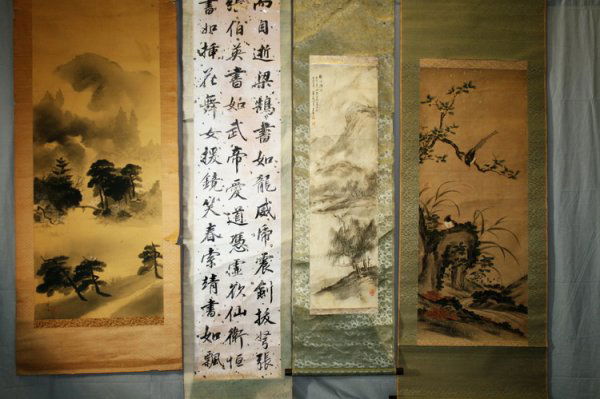 而自逝梁鵠書如龍威虎震劍拔弩張
張伯英書如武帝愛道憑虛欲仙衛恒
書如插花舞女援鏡笑春索靖書如飄